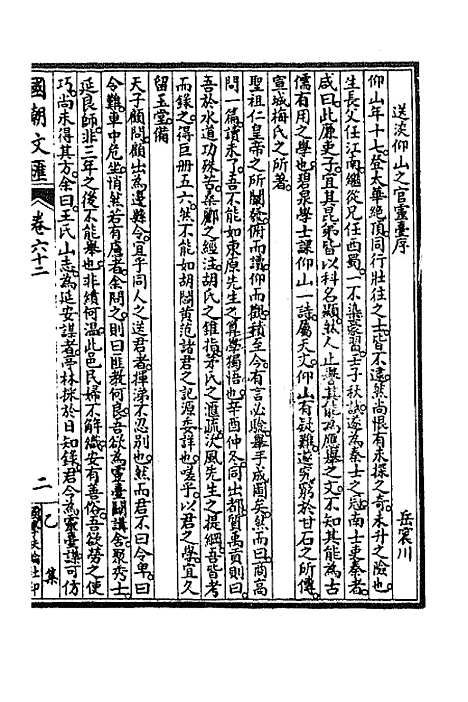 送淡仰山之官靈臺序　岳震川
仰山年十七登太華絶頂同行壯往之士皆不逮然尚恨有未探之奇未升之險也
生長父任江南繼從兄任西蜀一不染豪習壬子秋試遂為秦士之冠南士東秦者
咸曰此廉吏子宜其昆弟皆以科名顯然人止譽其能為應舉之文不知其能為古
儒有用之學也碧泉學士課仰山一詩屬天文仰山有疑難遂窮躬於甘石之所傳
宣城梅氏之所著
聖祖仁皇帝之所闡發俯而識仰而觀積至今有言必驗舉手成圖矣然而曰商高
問一篇讀未了吾不能如東原先生之算學獨悟也辛酉仲冬同出都質禹貢則曰
吾於水道功殊苦桑酈之經注胡氏之錐指茅氏之滙疏決風先生之提綱吾皆考
而錄之得巨册五六然不能如胡閻黄范諸君之記源委詳也嗟乎以君之學宜久
留玉堂備
天子顧問顧出為邊縣令宜乎同人之送君者揮涕不忍别也然而君不曰令卑曰
令難車中危坐悄然若有慮者余問之則曰匪教何良吾欲為靈臺闢講舍聚秀士
延良師非三年之後不能舉也非績何温此邑民婦不解織安有善俗吾欲勞之使
巧尚未得其方余曰王氏山志為延安謀者亭林採於日知錄君今為靈臺謀可仿
國朝文匯　卷六十二　二　乙集　國學扶輪社印